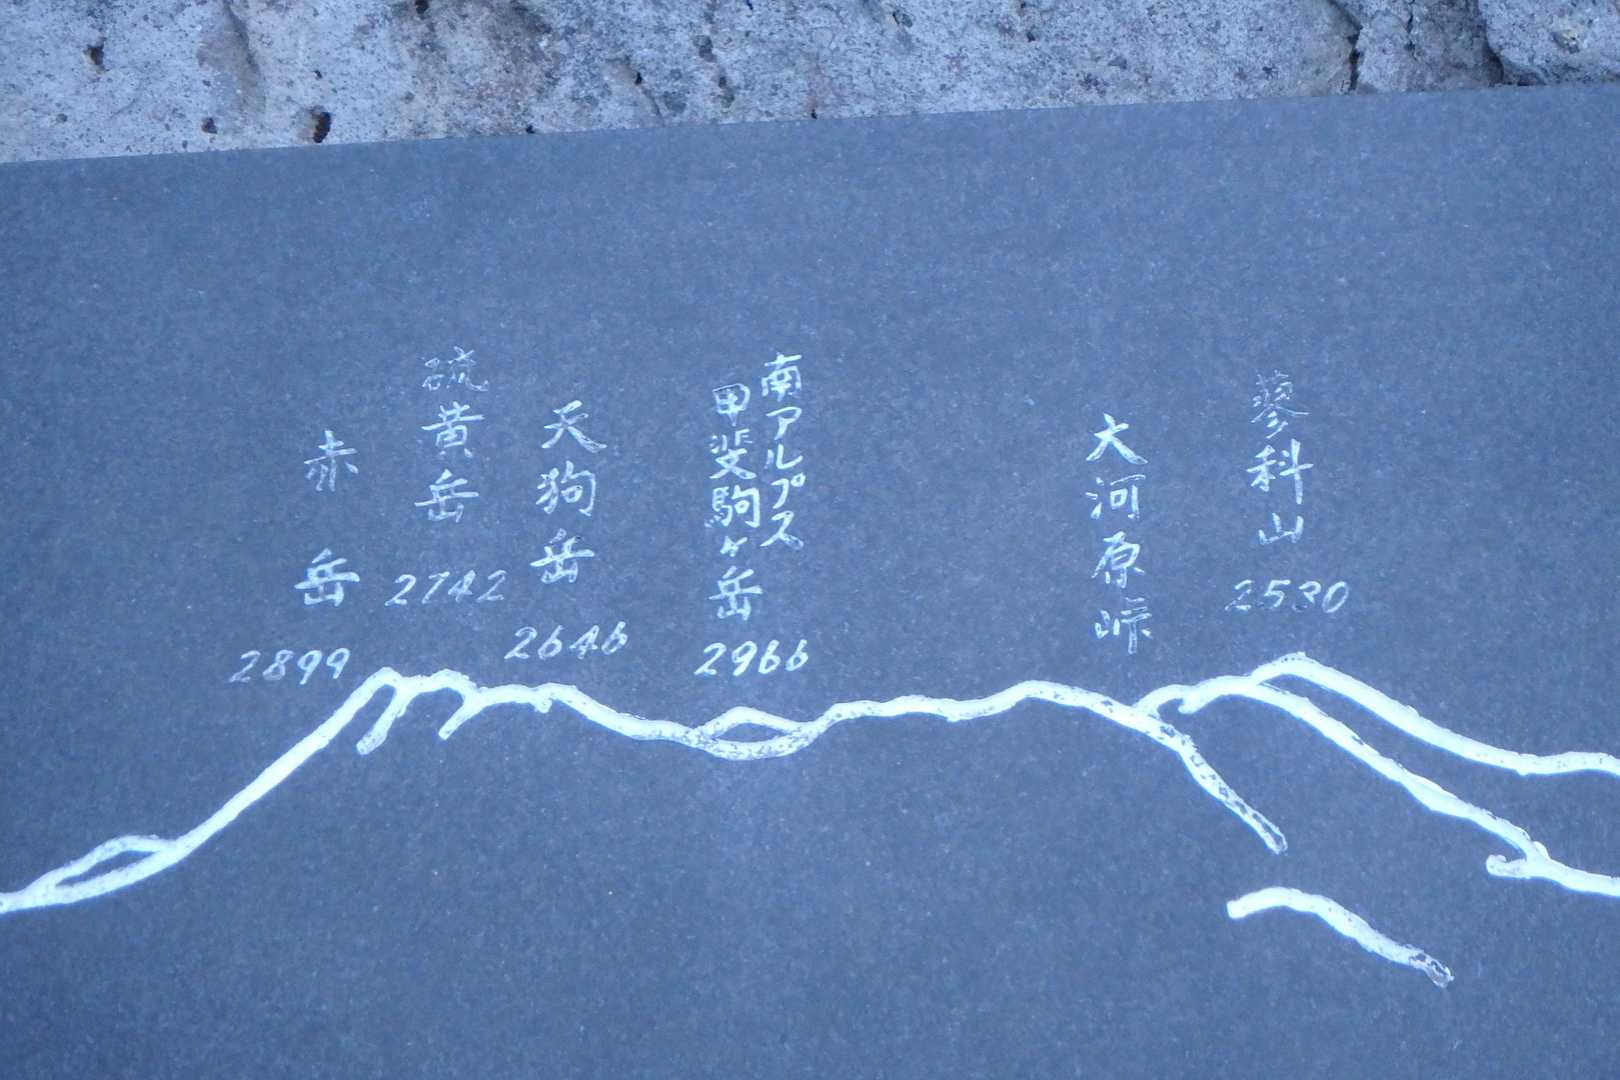 赤岳
2899
硫黄岳
2742
天狗岳
2646
南アルプス
甲斐駒ヶ岳
2966
大河原峠
蓼科山
2530